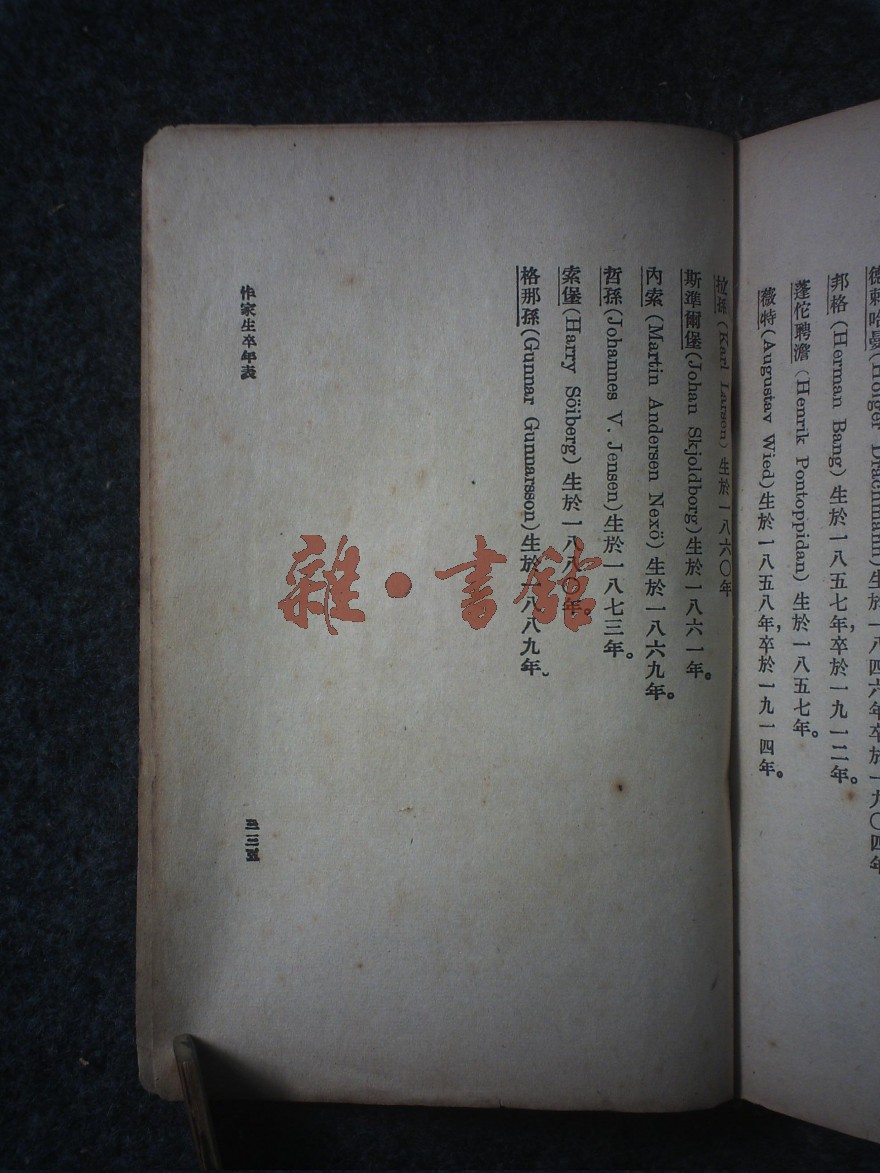 德剌哈曼(Holger Drachmann)生於一八四六年卒於一九〇四年
邦格(Herman Bang)生於一八五七年,卒於一九一二年。
蓬佗聘澹(Henrik Pontoppidan)生於一八五七年。
薇特(Augustav Wied)生於一八五八年,卒於一九一四年。
拉孫(Karl Larsen)生於一八六〇年
斯準爾堡(Johan Skjoldborg)生於一八六一年。
內索(Martin Andersen Nexö)生於一八六九年。
哲孫(Johannes V. Jensen)生於一八七三年。
索堡(Harry Söiberg)生於一八八〇年。
格那孫(Gunnar Gunnarsson)生於一八八九年。
作家生卒年表
三三五
雜·書館